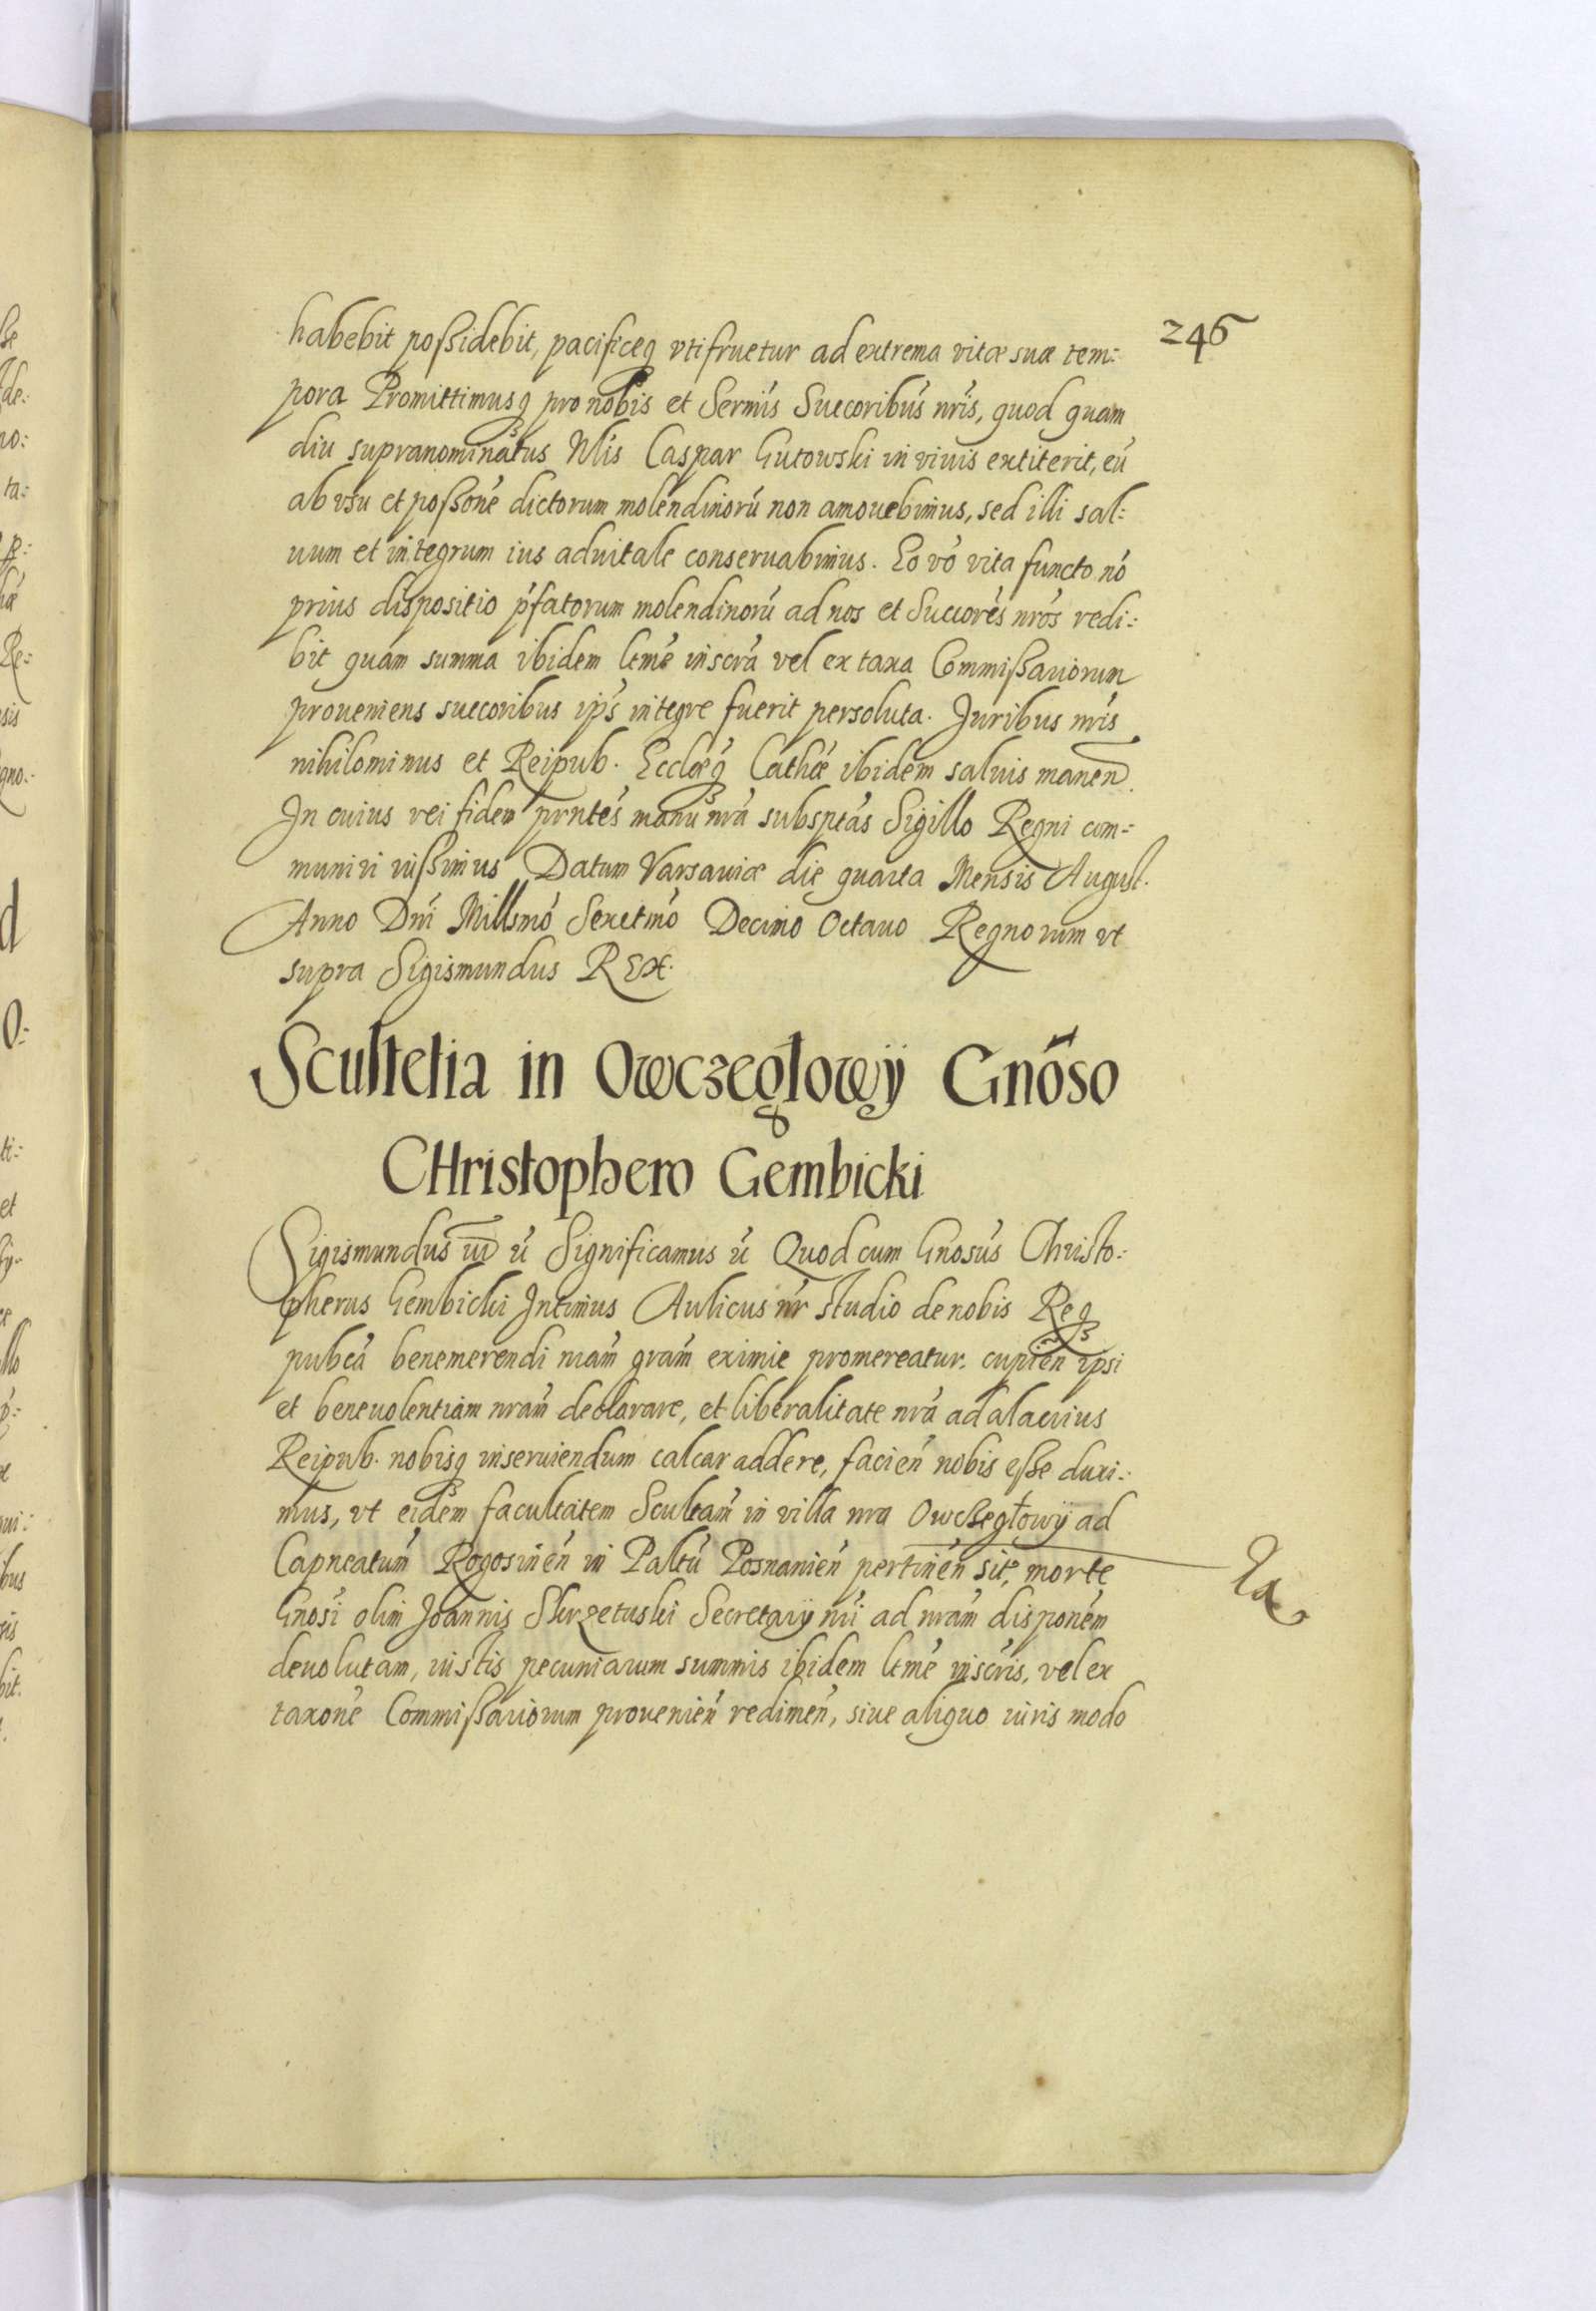 246
habebit poßidebit, pacificeq₃ vtifruetur ad extrema vitæ suæ tem:
pora Promittimusq₃ pro nobis et Sermis Succoribus nris, quod quam
diu supranominatus Nlis Caspar Gutowski in viuis extiterit, eū
ab vsu et poßone dictorum molendinorū non amouebimus, sed illi sal:
uum et integrum ius aduitale conseruabimus. Eo vo vita functo nō
prius dispositio pfatorum molendinorū ad nos et Succores nros redi:
bit quam summa ibidem ltme inscra vel ex taxa Commißariorum
proueniens succoribus ips integre fuerit persoluta. Juribus nris
nihilominus et Reipub. Ecclæq₃ Cathæ ibidem saluis manen.
In cuius rei fidem prntes manu nra subsptas Sigillo Regni com:
muniri iußimus Datum Varsauiæ die quarta Mensis August.
Anno Dni Millsmo Sexctmo Decimo Octauo Regnorum vt
supra Sigismundus REX.
Scultetia in Owczegłowÿ Gnoso
CHristophero Gembicki
Sigismundus III ū Significamus ū Quod cum Gnosus Christo:
pherus Gembicki Intimus Aulicus nr studio de nobis Req₃
pubca benemerendi nram gram eximie promereatur. cupien ipsi
et beneuolentiam nram declarare, et liberalitate nra ad alacrius
Reipub. nobisq₃ inseruiendum calcar addere, facien nobis eße duxi:
mus, vt eidem facultatem Scultam in villa nra Owczegłowÿ ad
Capneatum Rogosinen in Paltu Posnanien pertinen sitę, morte
Gnosi olim Joannis Skrzetuski Secretarÿ nri ad nram disponem
deuolutam, iustis pecuniarum summis ibidem ltme inscris, vel ex
taxone Commißariorum prouenien redimen, siue aliquo iuris modo